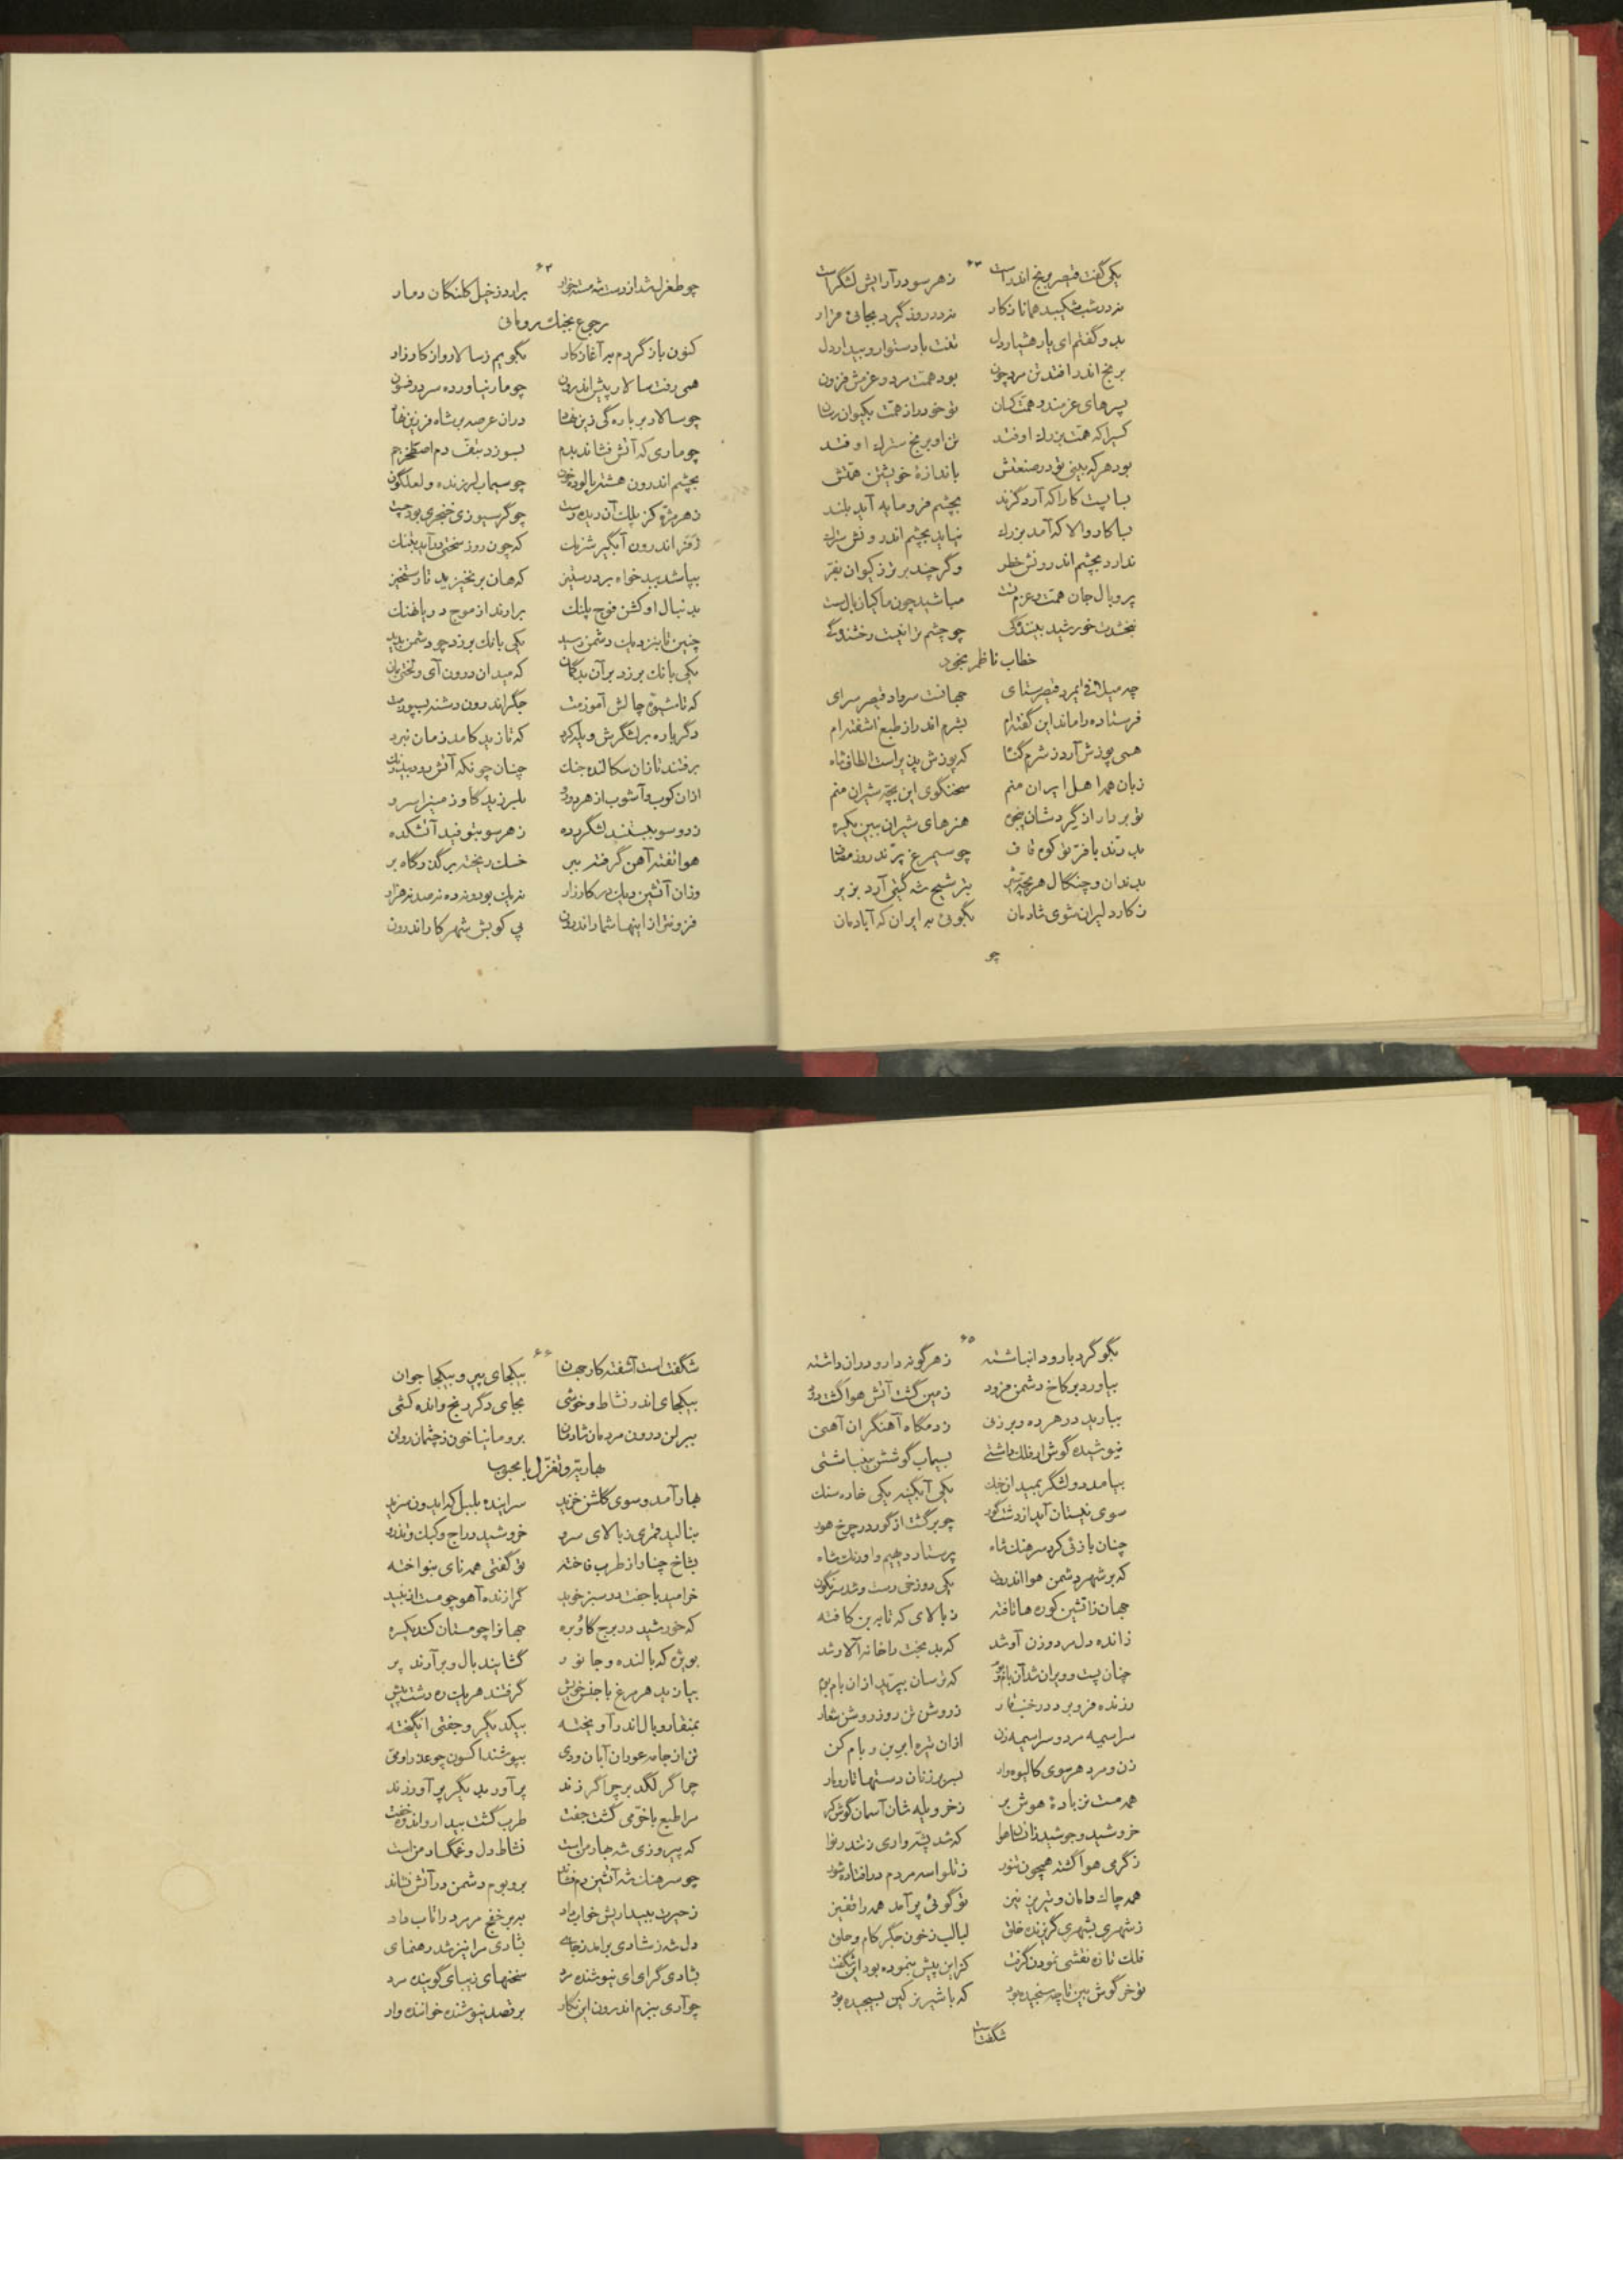 ۶۳
یکی گفت قیصر برنج اندر است زهر سو در آرایش لشگر است
نه در شب شکیبد همانا ز کار نه در روز گیرد بجائی قرار
بدو گفتم ای یار هشیار دل تنت باد ستوار و بیدار دل
برنج اندر افتد تن مرد چون بود همت مرد و عزمش فزون
پسرهای عزمند و همت کسان تو خود را ز همت بکیوان رسان
کسیرا که همت بزرگ اوفتد تن او برنج سترگ اوفتد
بود هر که بینی تو در صنعتش باندازهٔ خویشتن همتش
بسا پست کارا که آرد گزند بچشم فرومایه آید بلند
بسا کار والا که آمد بزرگ نیاید بچشم اندرونش سترگ
ندارد بچشم اندرونش خطر وگر چند برتر ز کیوان بفر
پر و بال جان همت و عزم تست مباشید چون ماکیان بال سست
نبخشدت خورشید بینندگی چو چشم ترا نیست رخشندگی
خطاب ناظم بخود
چه میلافی ایمرد قیصر ستای جهانت سرواد قیصر سرای
فرستاده را ماند این گفته‌ام بشرم اندر از طبع آشفته‌ام
همی پوزش آرد ز شرم گناه که پوزش پذیر است الطاف شاه
زبان همه اهل ایران منم سخنگوی این بچه شیران منم
تو بردار از گیر دشان پنجره هنرهای شیران ببین یکسره
بدرند با فرّ تو کوه قاف چو سیمرغ پرّند روز مصاف
بدندان و چنگال هر بچه شیر بتر شیح شه گیتی آرد بزیر
ز کار دلیران شوی شادمان بگوئی به ایران که آباد مان
چو
۶۴
چو طغرل شد از دست شه مسته خوار برآرد ز خیل کلنگان دمار
رجوع بجنک رومانی
کنون باز گردم به آغاز کار بگویم ز سالار و از کارزار
همی رفت سالار پیش اندرون چو مار نیاورده سر در فسون
چو سالار بر بارگی زین نهاد دران عرصه بر شاه فرزین نهاد
چو ماری که آتش فشاند بدم بسوزد بتفّ دم
بچشم اندرون هشته پالوده خون چو سیماب لرزنده و لعلگون
زهر مژه کز پلک آن دیده رست چو گرسیوزی خنجری بود چست
اندرون آبگیر شرنک که چون روز سختی درآید بتنک
بپاشد ببد خواه بر درستیز که هان برنخیزید تا رستخیز
بدنبال او کشن فوج پلنک برارند از موج دریا نهنک
چنین تا بنزدیک دشمن رسید یکی بانک برزد چو دشمن بدید
یکی بانک برزد بر آن بدگمان که میدان درون آی و لختی بمان
که تا شیوهٔ چالش آموزمت جگر اندرون دشنه بسپوزمت
دگر باره بر لشگرش ویله کرد که تازید کامد زمان نبرد
برفتند تازان سکالنده جنک چنان چونکه آتش بدود
ازان کوب و آشوب از هر دو رو بلرزید گاو زمین را سرو
ز دو سو ببستند لشگر رده زهر سو بتوفید آتشکده
هوا تفته آهن گرفته ببر خسک ریخته بر گذرگاه بر
وزان آتشین دیک در کارزار نه یک بود و نه ده نه صد نه هزار
فزونتر از اینها شمار اندرون پی کوبش شهر کار اندرون
۶۵
بگو گرد بارود انباشته زهر گونه دارو دران داشته
بیاورد بر کاخ دشمن فرود زمین گشت آتش هوا گشت دود
ببارید در هر ده و برزنی ز دمگاه آهنگران آهنی
نیوشیده گوش ار فلک داشتی بسیماب گوشش بینباشتی
بیامد دو لشگر بمیدان جنک یکی آبگینه یکی خاره سنک
سوی نیستان آید از دشت گور چو برگشت از گور در چرخ هور
چنان بازئی کرد سرهنک شاه پرستار دیهیم و اورنک شاه
که بر شهر دشمن هوا اندرون یکی دوزخی رست و شد سرنگون
جهان زآتشین کوره‌ها تافته ز بالای که تا به بن کافته
ز انده دل مرد و زن آو شد که بدبخت را خانه آلاو شد
چنان پست و ویران شد آن بام و بوم که ترسان بپرید ازان بام بوم
رونده فرو برد در رخنه مار ز روشن تن روز روشن شعار
سراسیمه مرد و سراسیمه زن ازان تیره ابرین و بام کن
زن و مرد هر سوی کالیوه‌وار بسر بر زنان دستها تاروبار
همه مست نز بادهٔ هوش بر ز خر ویله شان آسمان گوش کر
خروشید و جوشید زان ماجرا که شد پشّه واری ز تندر نوا
ز گرمی هوا گشته همچون تنور ز تلواسه مردم در افتاده شور
همه چاک دامان و تیر بن تین تو گوئی بر آمد همه را قفین
ز شهری بشهری گریزنده خلق لبالب ز خون جگر کام و حلق
فلک تازه نقشی نمودن گرفت کزاین پیش ننموده بود این شگفت
تو خر گوش بین تا چه سنجیده بود که با شیر نر کین بسیجیده بود
شگفت است
۶۶
شگفت است آشفته کار جهان بیکجای پیر و بیکجا جوان
بیکجای اندر نشاط و خوشی بجای دگر رنج و انده کشی
ببرلن درون مردمان شادمان برومانیا خون ز چشمان روان
بهاریّه و تغزّل با محبوب
بهار آمد و سوی گلشن خزید سراینده بلبل که ایدون سزید
بنالید قمری ز بالای سرو خروشید درّاج و کبک و تذرو
بشاخ چنار از طرب فاخته تو گفتی همه نای بنواخته
خرامید با جفت در سبز خوید گرازنده آهو چو مست از نبید
که خورشید در برج گاو بره جهانرا چو مستان کند یکسره
بویژه که بالنده و جانور گشایند بال و برآرند پر
بیازید هر مرغ با جفت خویش گرفتند هر یک ره دشت پیش
بمنقار و بال اندر آویخته بیکدیگر و جفتی انگیخته
تن از جامه عوران آبان و دی بپوشند اکسون چو عذراء و می
چماگر لگد بر چراگر زند پر آور بدیگر پر آور زند
مرا طبع با خرّمی گشت جفت طرب گشت بیدار و اندوه خفت
که پیروزی شه بهار من است نشاط دل و غمگسار من است
چو سرهنک شه آتشین دم فشاند بر و بوم دشمن در آتش نشاند
ز حیرت ببیداریش خواب داد بدو بر خفچ مر مرد را تاب داد
دل شه ز شادی برآمد ز جای بشادی مرا نیز شد رهنمای
بشادی گرای ای نیوشنده مرد سخنهای زیبای گوینده مرد
چو آری ببزم اندرون این نگار برقصد نیوشنده خواننده وار